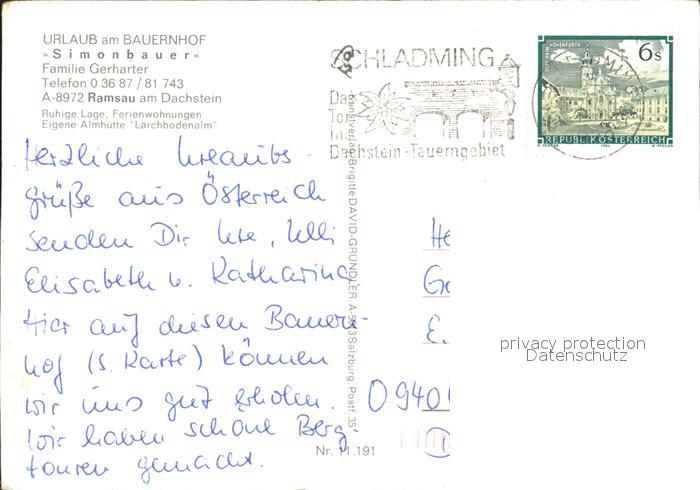 URLAUB am BAUERNHOF
»Simonbauer«
Familie Gerharter
Telefon 0 36 87 / 81 743
A-8972 Ramsau am Dachstein
Ruhige Lage, Ferienwohnungen
Eigene Almhütte "Lärchbodenalm"
Herzliche Urlaubs-
grüße aus Österreich
senden Dir Ute, Ulli
Elisabeth u. Katharina
Hier auf diesen Bauern-
hof (s. Karte) können
wir uns gut erholen.
Wir haben schöne Berg-
touren gemacht.
Kunstverlag Brigitte DAVID-GRÜNDLER, A-5013 Salzburg, Postf. 35
Nr. 11.191
SCHLADMING
Das
Tor
im
Dachstein-Tauerngebiet
6 s
REPUBLIK ÖSTERREICH
He
Ge
E.
0940
privacy protection
Datenschutz